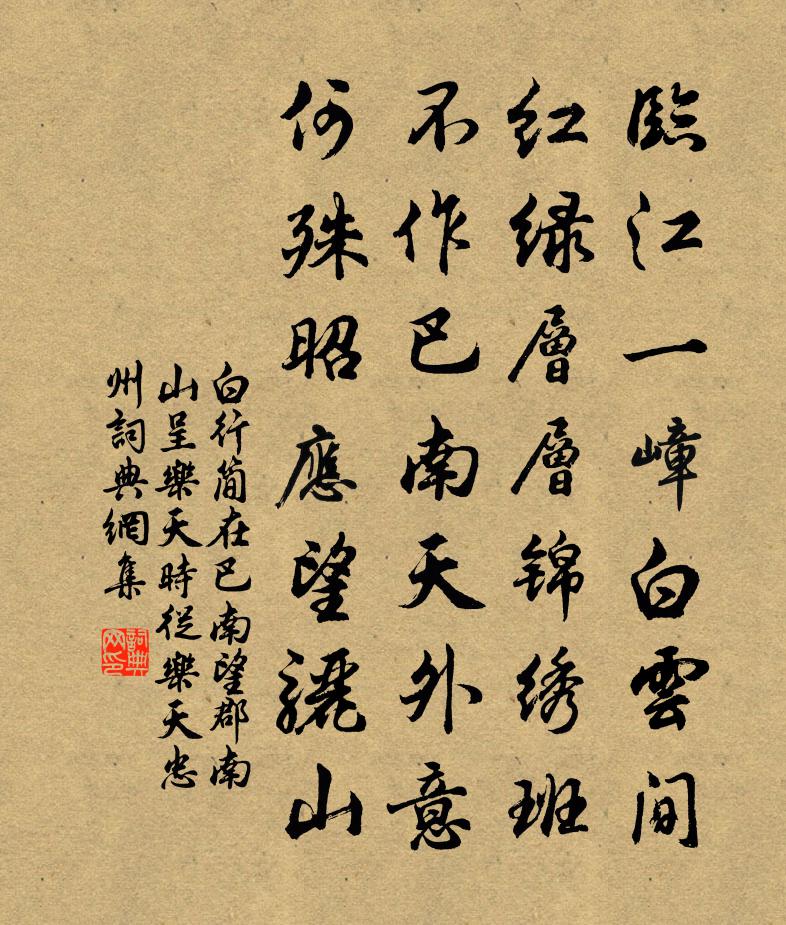 臨江一嶂白雲间
红绿層層锦绣班
不作巴南天外意
何殊昭應望驪山
白行简在巴南望郡南
山呈樂天時從樂天忠
州詞典網集
詞典网印